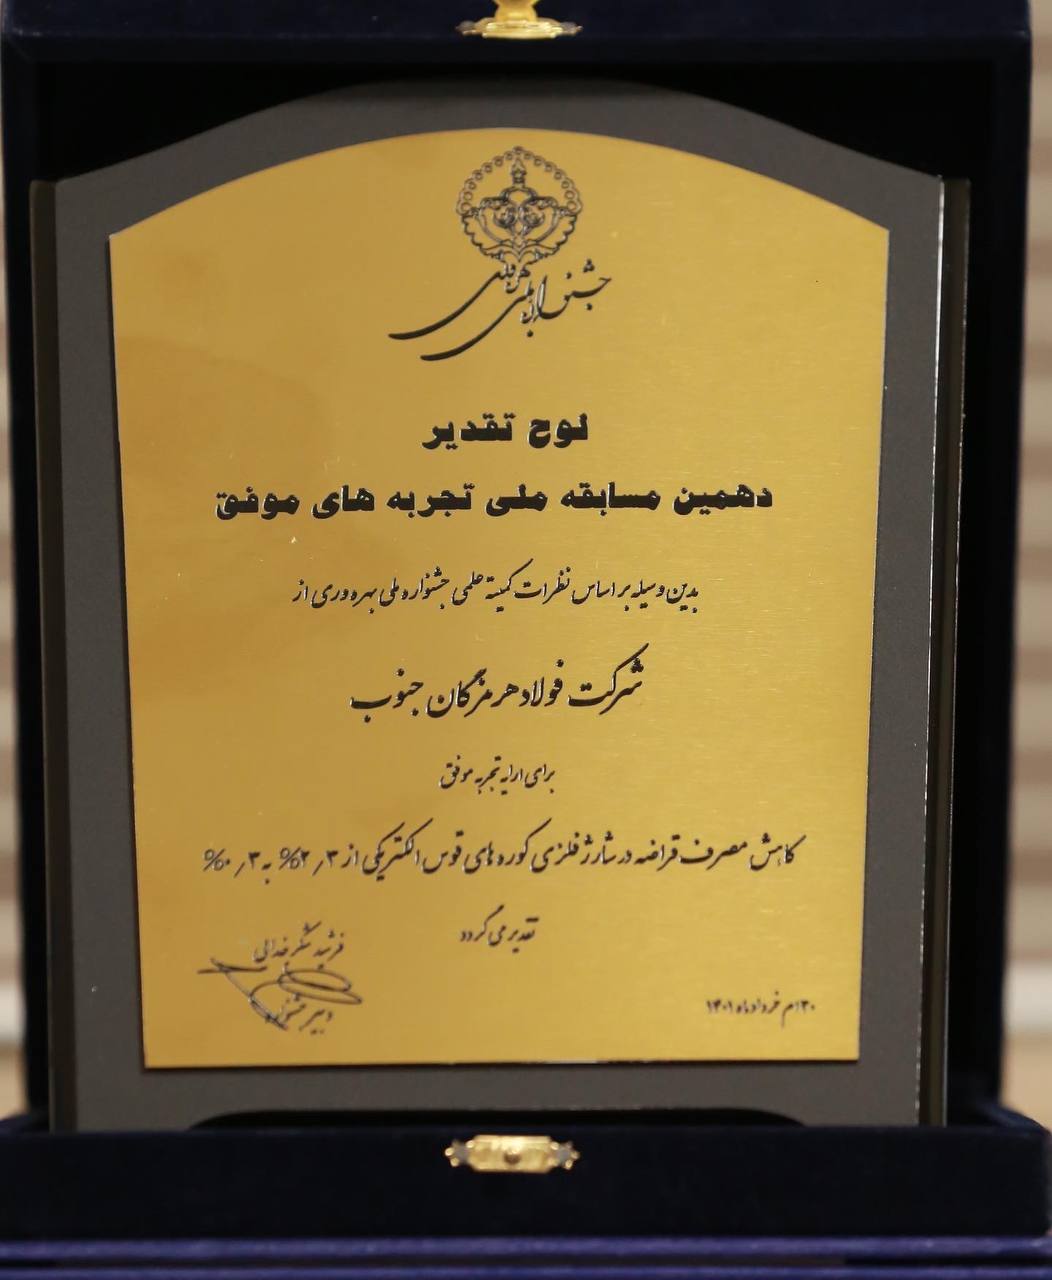 جشنواره ملی بهره وری
لوح تقدیر
دهمین مسابقه ملی تجربه های موفق
بدین وسیله بر اساس نظرات کمیته علمی جشنواره ملی بهره وری از
شرکت فولاد هرمزگان جنوب
برای ارایه تجربه موفق
کاهش مصرف قراضه در شارژ فلزی کوره های قوس الکتریکی از ۲٫۳% به ۰٫۳%
تقدیر می گردد
فرشید شکرخدائی
دبیر جشنواره
۳۰ام خرداد ماه ۱۴۰۱